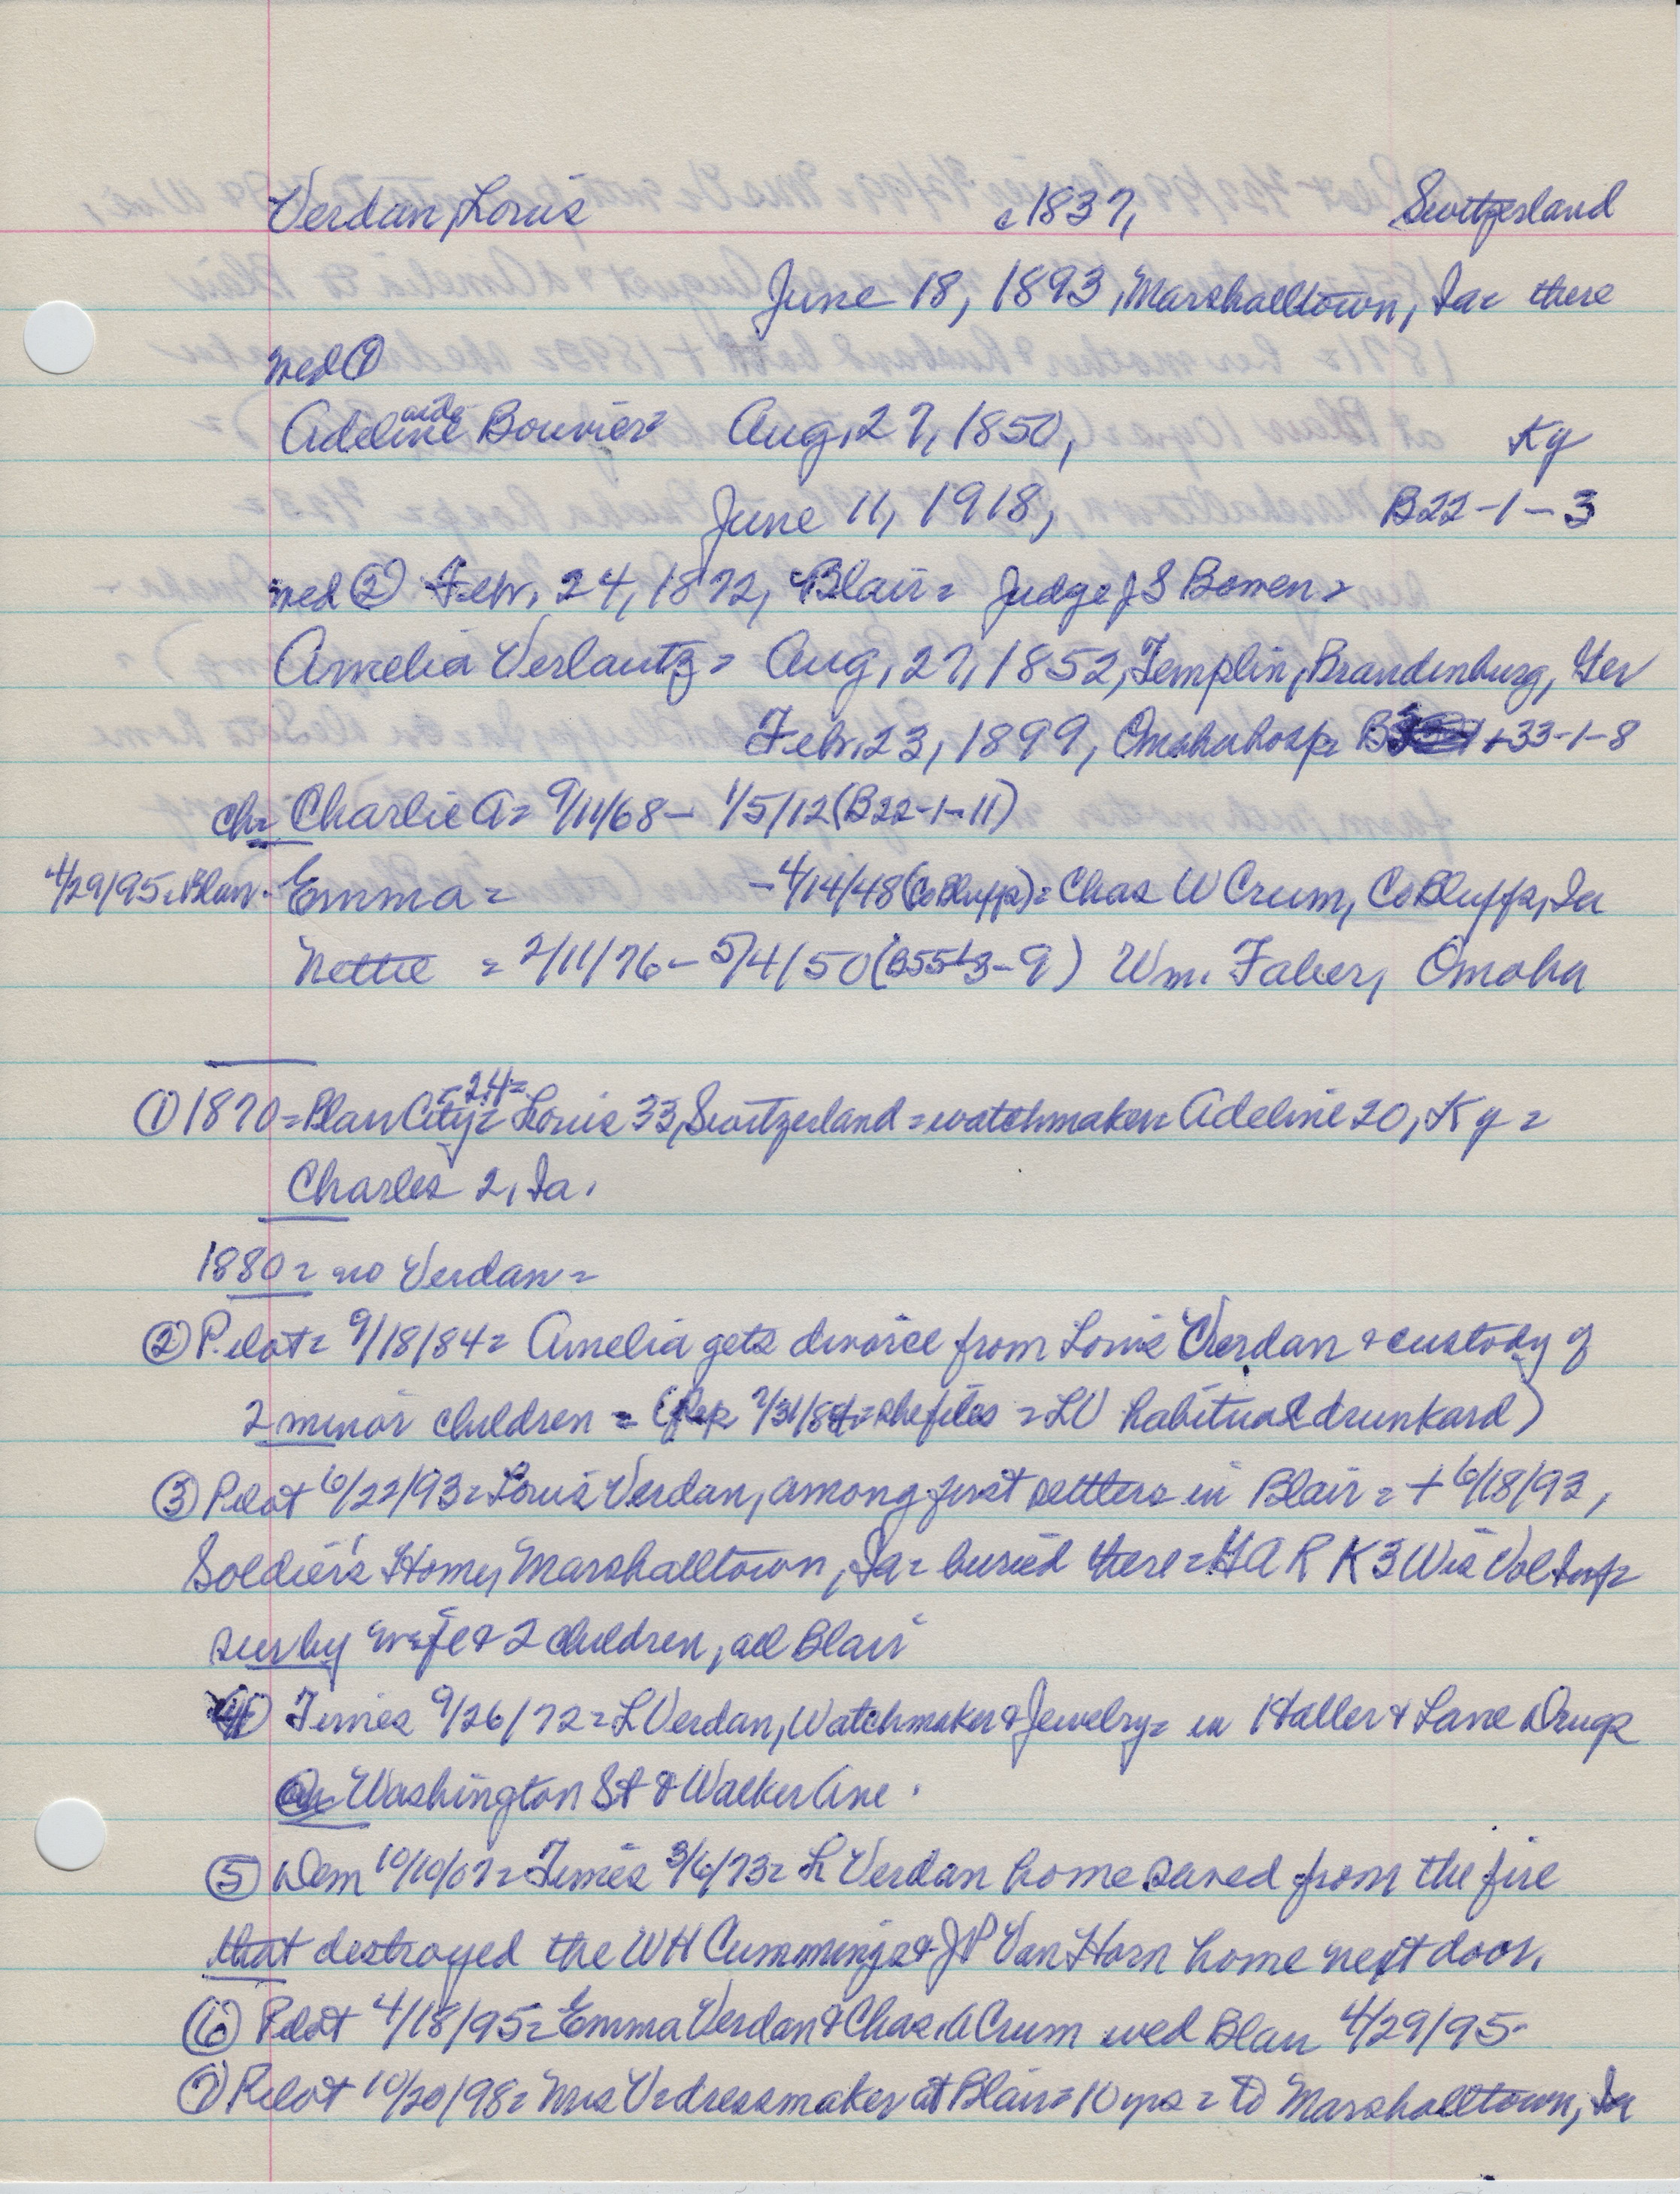 Verdan, Louis c1837, Switzerland
June 18, 1893, Marshalltown, Ia= there
wed ①
aide
Adeline Bouvier= Aug. 27, 1850, Ky
June 11, 1918, B22-1-3
wed ② Febr. 24, 1872, Blair= Judge J S Bowen=
Amelia Verlautz= Aug, 27, 1852, Templin, Brandenburg, Ger
Febr. 23, 1899, Omaha hosp= 33-1-8
ch= Charlie A= 9/11/68- 1/5/12 (B22-1-11)
4/29/95=Blair. Emma= -4/14/48 (CoBluffs)= Chas W Crum, CoBluffs, Ia
Nettie = 2/11/76- 5/4/50 (B55 3-9) Wm. Faber, Omaha
-24=
① 1870=Blair City= Louis 33, Switzerland=watchmaker= Adeline 20, Ky=
Charles 2, Ia.
1880= no Verdan=
② Pilot= 9/18/84= Amelia gets divorce from Louis Verdan & custody of
2 minor children = (Rep 7/31/84=she files = LV habitual drunkard)
③ Pilot 6/22/93=Louis Verdan, among first settlers in Blair= + 6/18/93,
Soldier's Home, Marshalltown, Ia= buried there= G A R K 3 Wis Vol Inf=
sur by wife & 2 children, all Blair
④ Times 9/26/72=L Verdan, Watchmaker & Jewelry= in Haller & Lane Drugs
Washington St & Walker Ave.
⑤ Dem 10/10/07=Times 3/6/73= L Verdan home saved from the fire
that destroyed the WH Cummings & J P Van Horn home next door.
⑥ Pilot 4/18/95=Emma Verdan & Chas Crum wed Blair 4/29/95-
⑦ Pilot 10/20/98= Mrs V=dressmaker at Blair=10 yrs = to Marshalltown, Ia